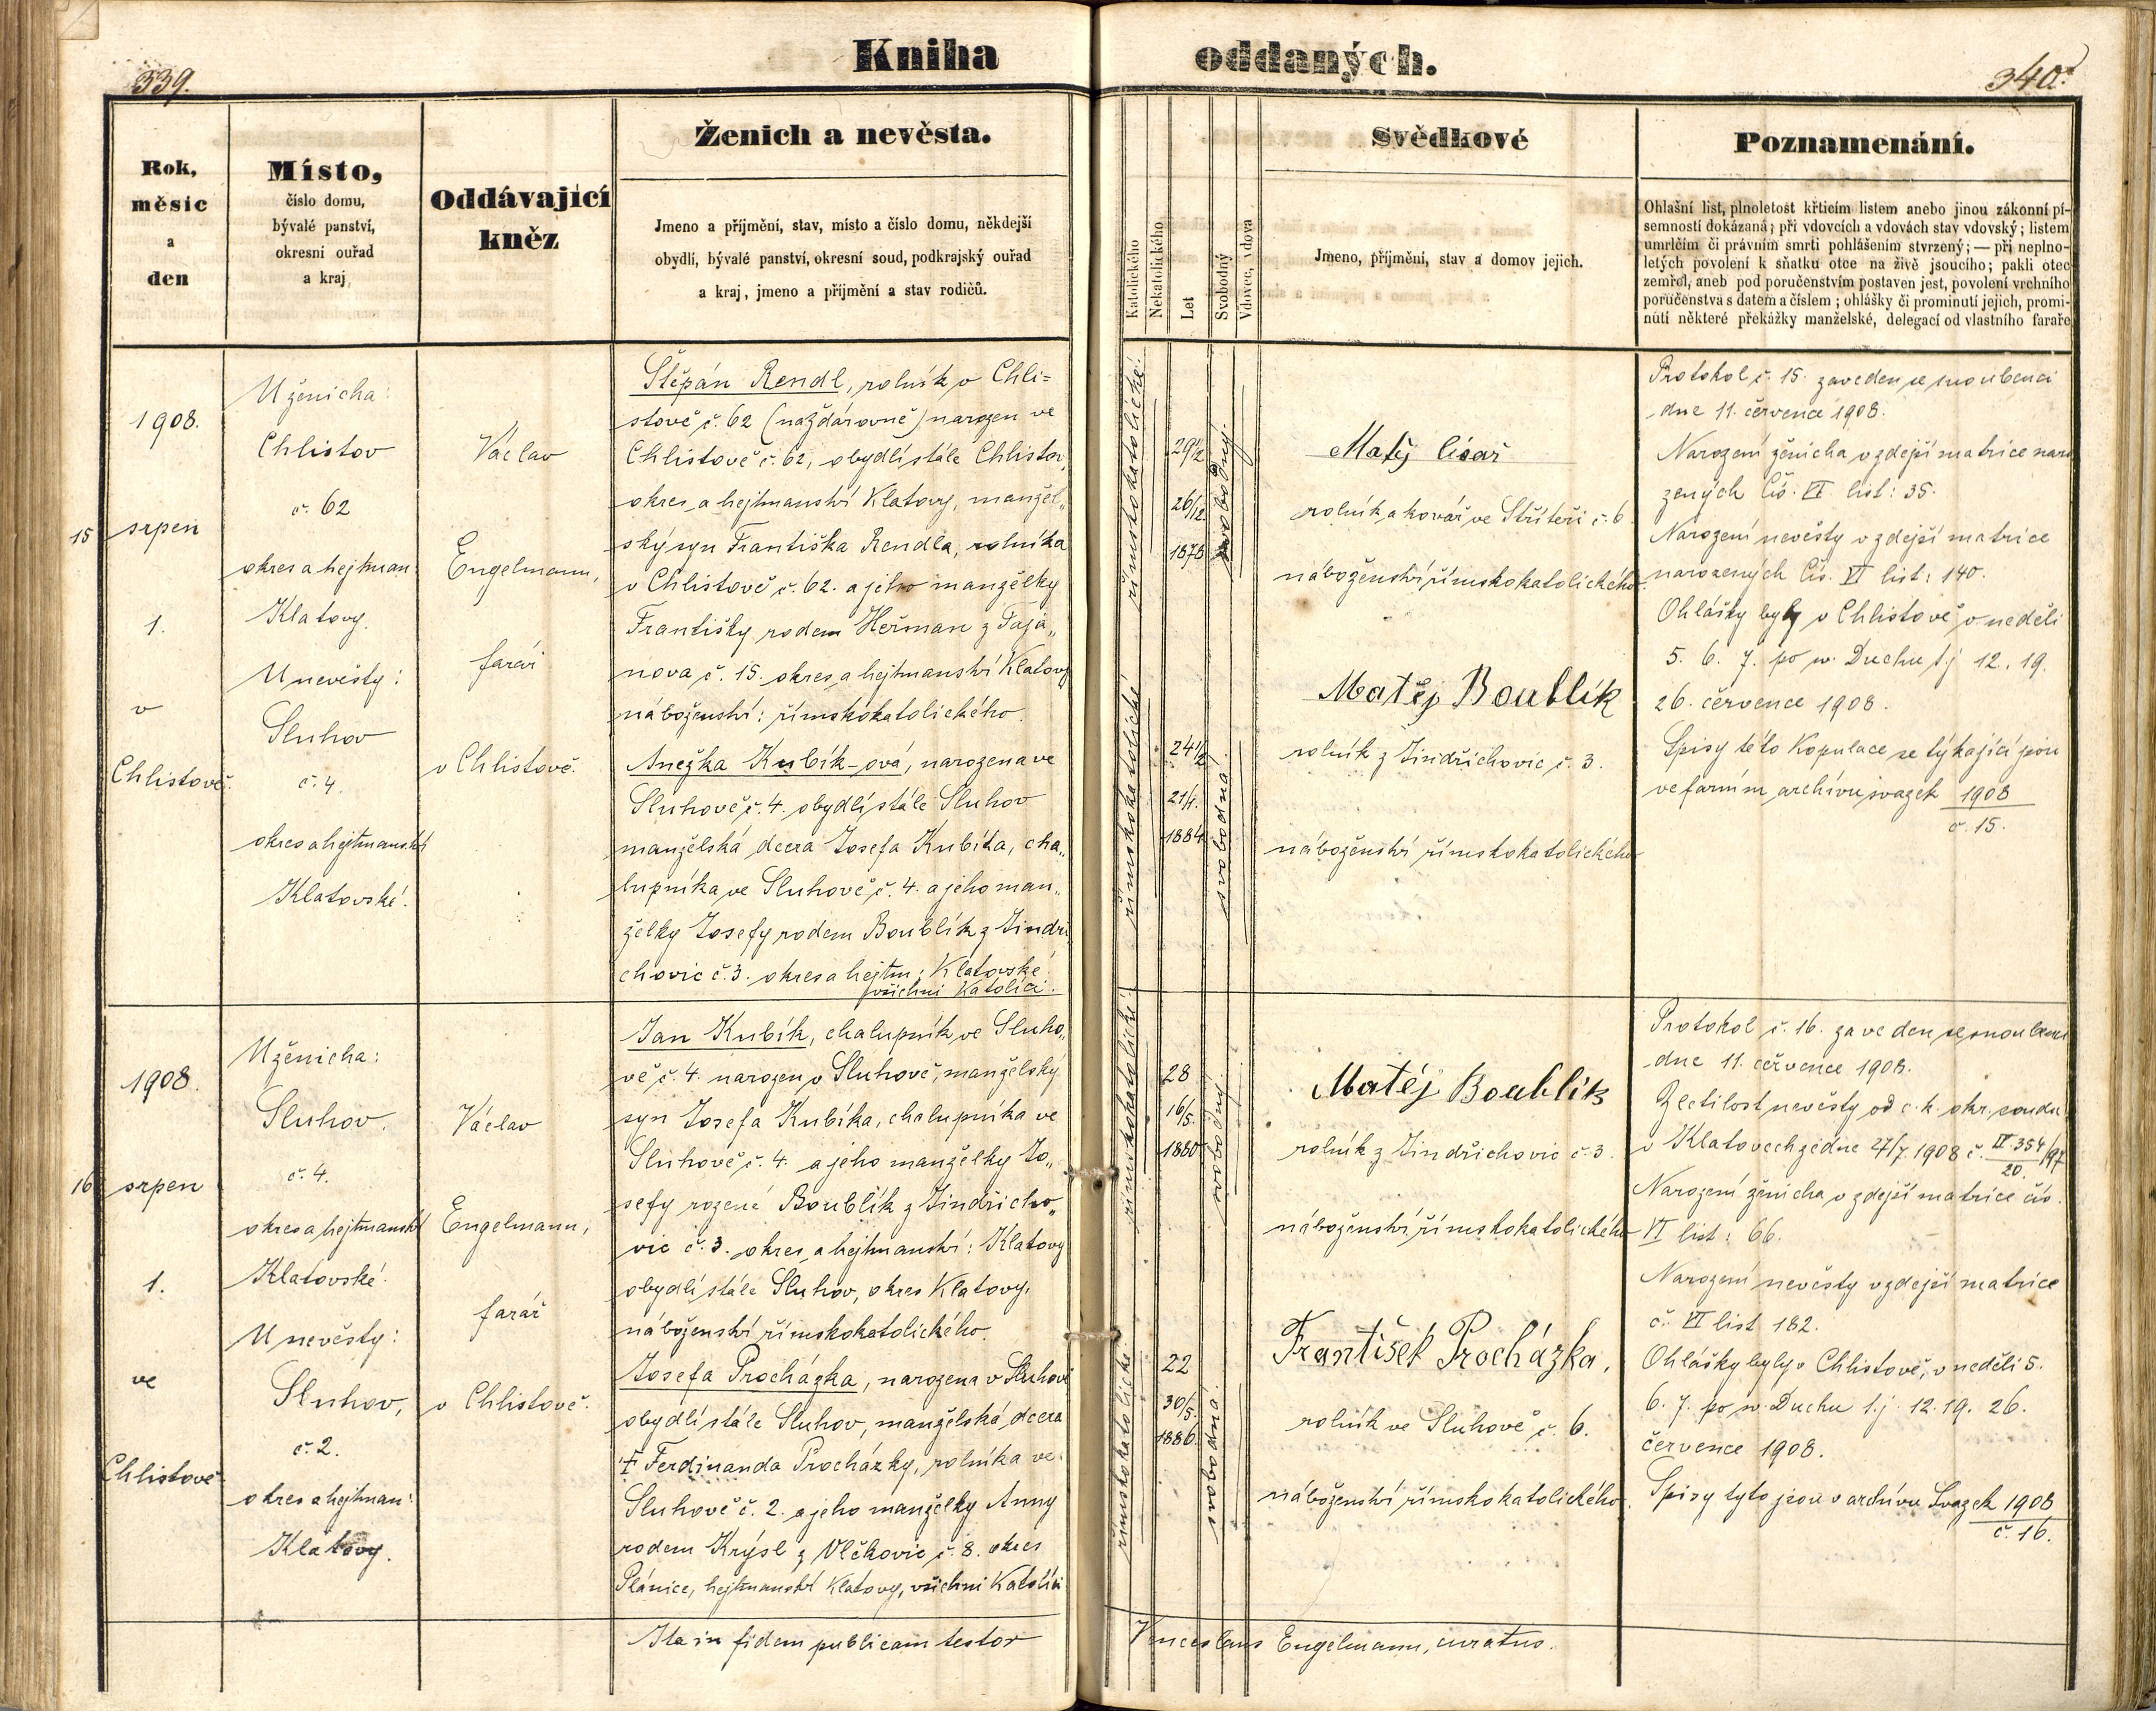 339.
Kniha
oddaných.
340.
Rok,
měsíc
a
den
Místo,
číslo domu,
bývalé panství,
okresní ouřad
a kraj
Oddávající
kněz
Ženich a nevěsta.
Jmeno a příjmění, stav, místo a číslo domu, někdejší
obydlí, bývalé panství, okresní soud, podkrajský ouřad
a kraj, jmeno a příjmění a stav rodičů.
Katolického
Nekatolického
Let
Svobodný
Vdovec, vdova
Svědkové
Jmeno, příjmění, stav a domov jejich.
Poznamenání.
Ohlašní list, plnoletost křticím listem anebo jinou zákonní pí-
semností dokázaná; při vdovcích a vdovách stav vdovský; listem
umrlčím či právním smrti pohlášením stvrzený; — při neplno-
letých povolení k sňatku otce na živě jsoucího; pakli otec
zemřel, aneb pod poručenstvím postaven jest, povolení vrchního
poručenstva s datem a číslem; ohlášky či prominutí jejich, promi-
nutí některé překážky manželské, delegací od vlastního faráře
1908.
15 srpen
1.
v
Chlistově.
U ženicha:
Chlistov
č. 62
okres a hejtman
Klatovy.
U nevěsty:
Sluhov
č. 4.
okres a hejtmanství
Klatovské.
Václav
Engelmann,
farář
v Chlistově.
Štěpán Rendl, rolník v Chli=
stově č. 62 (nažďárovně) narozen ve
Chlistově č. 62, obydlí stále Chlistov,
okres a hejtmanství Klatovy, manžel„
ský syn Františka Rendla, rolníka
v Chlistově č. 62. a jeho manželky
Františky rodem Heřman z Taja„
nova č. 15. okres a hejtmanství Klatovy
náboženství: římskokatolického.
Anežka Kubík-ová, narozena ve
Sluhově č. 4. obydlí stále Sluhov
manželská dcera Josefa Kubíka, cha„
lupníka ve Sluhově č. 4. a jeho man„
želky Josefy rodem Boublík z Jindři
chovic č. 3. okres a hejtm: Klatovské
všichni Katolíci.
římskokatolické.
29½
26/12
1878
svobodný.
římskokatolické
24½
21/1.
1884
svobodná.
Matěj
rolník a kovář ve Střiteři č. 6
náboženství římskokatolického.
Matěj Boublík
rolník z Jindřichovic č. 3.
náboženství římskokatolického
Protokol č. 15. zaveden se snoubenci
dne 11. července 1908.
Narození ženicha v zdejší matrice naro
zených Čís. VI list: 35.
Narození nevěsty v zdejší matrice
narozených Čís. VI list: 140.
Ohlášky byly v Chlistově v neděli
5. 6. 7. po sv. Duchu t.j. 12. 19.
26. července 1908.
Spisy této Kopulace se týkající jsou
ve farním archívu svazek 1908
č. 15.
1908.
16 srpen
1.
ve
Chlistově
U ženicha:
Sluhov.
č. 4.
okres a hejtmanství
Klatovské.
U nevěsty:
Sluhov,
č. 2.
okres a hejtman:
Klatovy.
Václav
Engelmann,
farář
v Chlistově.
Jan Kubík, chalupník ve Sluho„
vě č. 4. narozen v Sluhově, manželský
syn Josefa Kubíka, chalupníka ve
Sluhově č. 4. a jeho manželky Jo„
sefy rozené Boublík z Jindřicho„
vic č. 3. okres a hejtmanství: Klatovy
obydlí stále Sluhov, okres Klatovy,
náboženství římskokatolického.
Josefa Procházka, narozena v Sluhově
obydlí stále Sluhov, manželská dcera
† Ferdinanda Procházky, rolníka ve
Sluhově č. 2. a jeho manželky Anny
rodem Krýsl z Vlčkovic č. 8. okres
Plánice, hejtmanství Klatovy, všichni Katolíci
římskokatolické.
28
16/5.
1880
svobodný.
římskokatolické
22
30/5.
1886.
svobodná.
Matěj Boublík
rolník z Jindřichovic č. 3.
náboženství římskokatolického
František Procházka,
rolník ve Sluhově č. 6.
náboženství římskokatolického.
Protokol č. 16. zaveden se snoubenci
dne 11. července 1908.
Zletilost nevěsty od c. k. okr. soudu
v Klatovech ze dne 27/7. 1908 č. IV. 354/97
20.
Narození ženicha v zdejší matrice čís.
VI list: 66.
Narození nevěsty v zdejší matrice
č. VI list 182.
Ohlášky byly v Chlistově, v neděli 5.
6. 7. po sv. Duchu t.j. 12. 19. 26.
července 1908.
Spisy tyto jsou v archívu Svazek 1908
č. 16.
Ita in fidem publicam testor Venceslaus Engelmann, curatus.